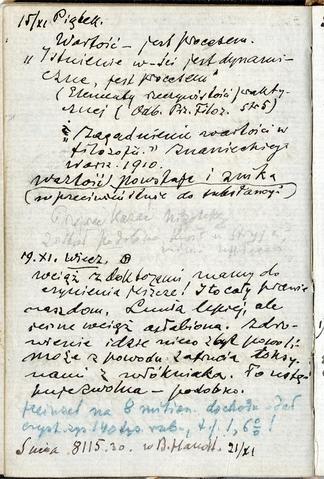 15/XI Piątek.
Wartość – jest procesem.
„Istnienie w-ści jest dynami-
czne, jest procesem"
(Elementy rzeczywistości prakty-
cznej (Odb. Prz. Filoz. str 5)
i „Zagadnienie wartości w
filozofii." Znanieckiego
Warsz. 1910.
wartość powstaje i znika
(w przeciwieństwie do substancji)
19.XI. wiecz.
wciąż z doktorami mamy do
czynienia jeszcze! I to cały prawie
nasz dom. Lunia lepiej, ale
wciąż osłabiona. Zdro-
wienie idzie nieco zbyt powoli
może z powodu zatrucia toksy-
nami z włókniaka. To ustę-
puje zwolna – podobno.
na 8 milion. dochodu dał
czyst. zys 140 tys. rub., t.j. 1,6%!
Suma 8115.30. w B. Handl. 21/XI